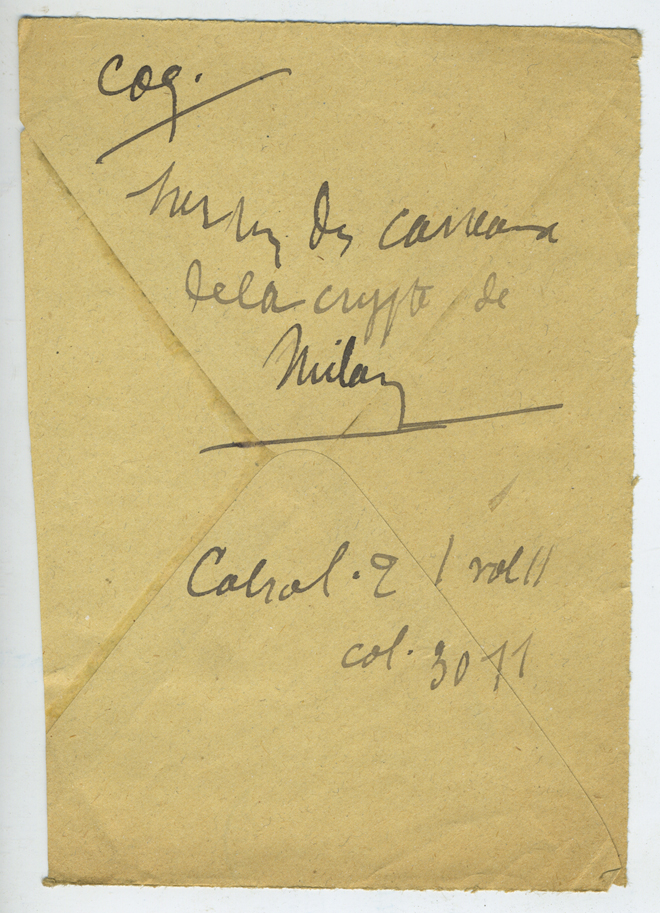 Coq.
des carreaux
dela crypte de
Milan
Cabrol. 2 / vol 11
col. 3011